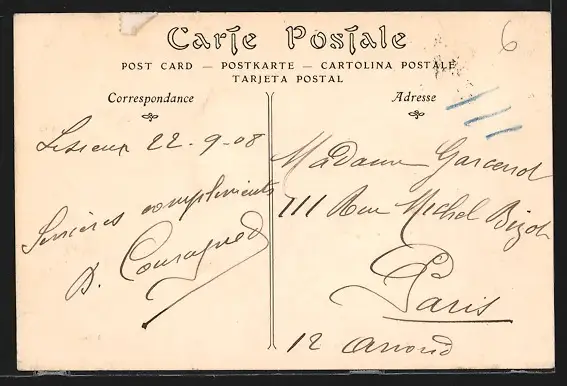 Carte Postale
POST CARD — POSTKARTE — CARTOLINA POSTALE
TARJETA POSTAL
Correspondance
Lisieux 22-9-08
Sincères compliments
Adresse
6
Madame
111 Rue Michel Bizot
Paris
12 arrond